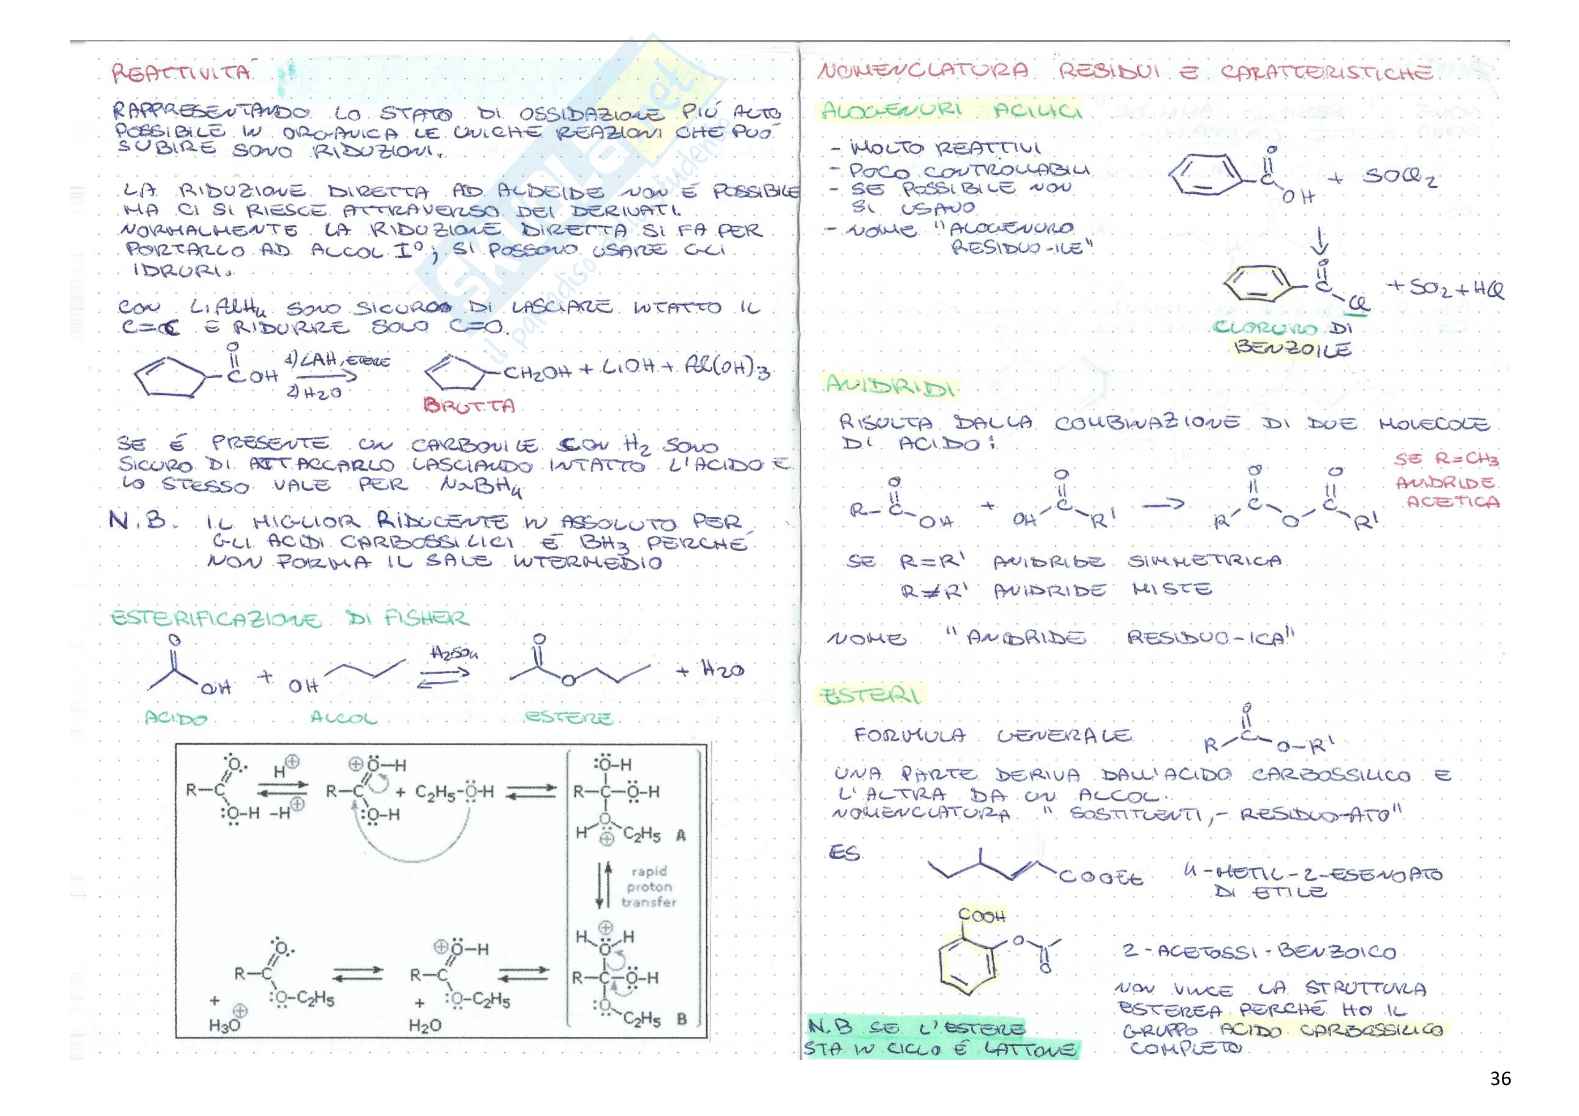 REATTIVITÀ
RAPPRESENTANDO LO STATO DI OSSIDAZIONE PIÙ ALTO
POSSIBILE IN ORGANICA LE UNICHE REAZIONI CHE PUÒ
SUBIRE SONO RIDUZIONI.
LA RIDUZIONE DIRETTA AD ALDEIDE NON È POSSIBILE
MA CI SI RIESCE ATTRAVERSO DEI DERIVATI.
NORMALMENTE LA RIDUZIONE DIRETTA SI FA PER
PORTARLO AD ALCOL I°; SI POSSONO USARE GLI
IDRURI.
CON LiAlH4 SONO SICURO DI LASCIARE INTATTO IL
C=C E RIDURRE SOLO C=O.
O
COH 1) LAH, ETERE CH2OH + LiOH + Al(OH)3
2) H2O
BRUTTA
SE È PRESENTE UN CARBONILE CON H2 SONO
SICURO DI ATTACCARLO LASCIANDO INTATTO L'ACIDO E
LO STESSO VALE PER NaBH4
N.B. IL MIGLIOR RIDUCENTE IN ASSOLUTO PER
GLI ACIDI CARBOSSILICI È BH3 PERCHÉ
NON FORMA IL SALE INTERMEDIO
ESTERIFICAZIONE DI FISHER
O H2SO4 O
OH + OH O + H2O
ACIDO ALCOL ESTERE
:O: H⊕ ⊕Ö–H :Ö–H
R–C R–C + C2H5–Ö–H R–C–Ö–H
:Ö–H –H⊕ :Ö–H H O⊕ C2H5 A
rapid
proton
transfer
H ⊕ H
:O: ⊕Ö–H O
R–C R–C R–C–Ö–H
:Ö–C2H5 :Ö–C2H5 :O C2H5 B
+ +
H3O⊕ H2O
NOMENCLATURA RESIDUI E CARATTERISTICHE
ALOGENURI ACILICI
- MOLTO REATTIVI
- POCO CONTROLLABILI
- SE POSSIBILE NON
SI USANO
- NOME "ALOGENURO
RESIDUO-ILE"
O
C OH + SOCl2
O
C Cl + SO2 + HCl
CLORURO DI
BENZOILE
ANIDRIDI
RISULTA DALLA COMBINAZIONE DI DUE MOLECOLE
DI ACIDO:
SE R=CH3
ANIDRIDE
ACETICA
O O O O
R–C OH + OH C R' → R C O C R'
SE R=R' ANIDRIDE SIMMETRICA
R≠R' ANIDRIDE MISTE
NOME "ANIDRIDE RESIDUO-ICA"
ESTERI
FORMULA GENERALE
O
R–C O–R'
UNA PARTE DERIVA DALL'ACIDO CARBOSSILICO E
L'ALTRA DA UN ALCOL.
NOMENCLATURA "SOSTITUENTI,- RESIDUO-ATO"
ES
COOEt 4-METIL-2-ESENOATO
DI ETILE
COOH
O
O
2-ACETOSSI-BENZOICO
NON VINCE LA STRUTTURA
ESTEREA PERCHÉ HO IL
GRUPPO ACIDO CARBOSSILICO
COMPLETO
N.B SE L'ESTERE
STA IN CICLO È LATTONE
36